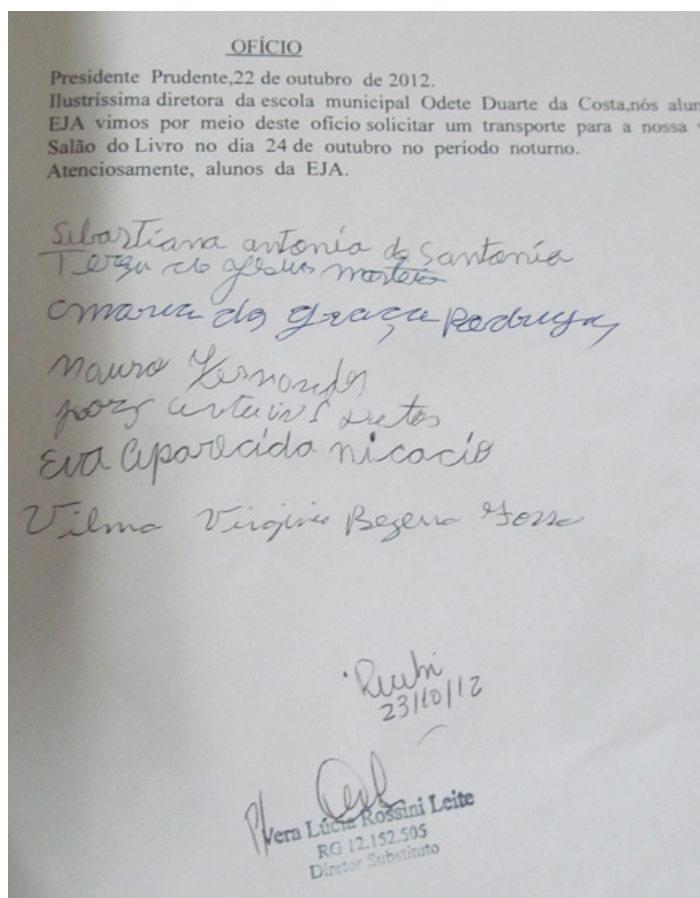 OFÍCIO
Presidente Prudente,22 de outubro de 2012.
Ilustríssima diretora da escola municipal Odete Duarte da Costa,nós alun
EJA vimos por meio deste oficio solicitar um transporte para a nossa
Salão do Livro no dia 24 de outubro no período noturno.
Atenciosamente, alunos da EJA.
Sebastiana antonia da Santania
de Jesus
maria da graça Rodrigues
Mauro Fernandes
Eva Aparecida nicacio
Vilma Virginia Bezerra
Recebi
23/10/12
P/ Vera Lúcia Rossini Leite
RG 12.152.505
Diretor Substituto